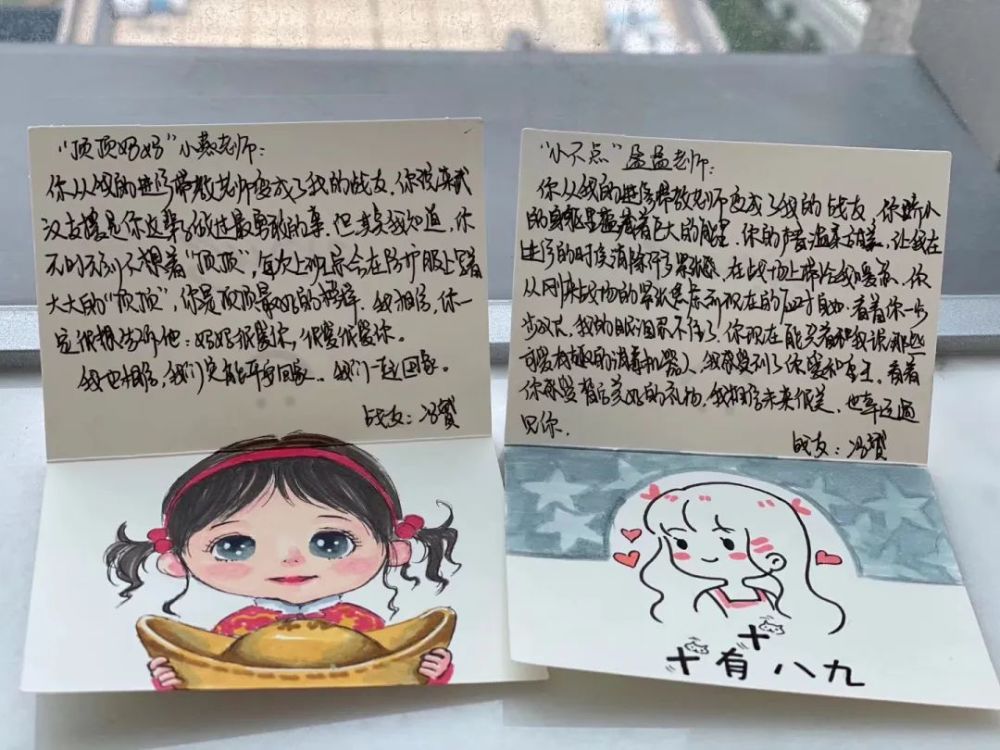 "顶顶妈妈"小燕老师：
你从我的进修带教老师变成了我的战友，你说来武
汉支援是你这辈子做过最勇敢的事，但其实我知道，你
无时无刻不想着"顶顶"，每次上班总会在防护服上写着
大大的"顶顶"，你是顶顶最好的榜样。我相信，你一
定很想告诉他：妈妈很爱你，很爱很爱你。
我也相信，我们定能平安回家。我们一起回家。
战友：冯贤
"小不点"孟孟老师：
你从我的进修带教老师变成了我的战友，你娇小
的身躯里蕴藏着巨大的能量，你的声音温柔甜美，让我在
进修的时候消除了紧张感，在战场上带给我暖意，你
从刚来战场的紧张焦虑到现在的应对自如，看着你一步
步成长，我的眼泪忍不住了，你现在能笑着和我谈那些
消毒机器人，我感受到了你
你
美好的礼物，我相信未来很美，也幸运遇
见你。
战友：冯贤
十
十有八九